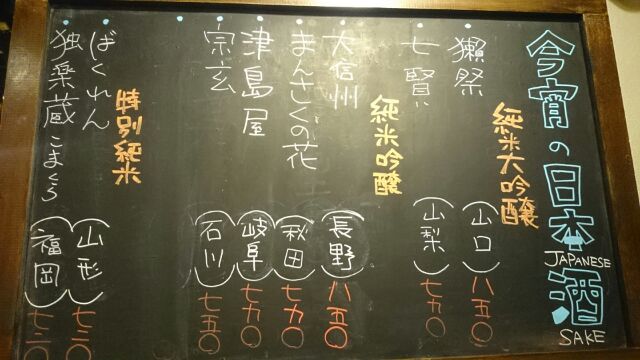 今宵の日本酒
JAPANESE
SAKE
純米大吟醸
獺祭（山口）八五〇
七賢（山梨）七九〇
純米吟醸
大信州（長野）八五〇
まんさくの花（秋田）七九〇
津島屋（岐阜）七九〇
宗玄（石川）七五〇
特別純米
ばくれん（山形）七二〇
独楽蔵こまくら（福岡）七二〇